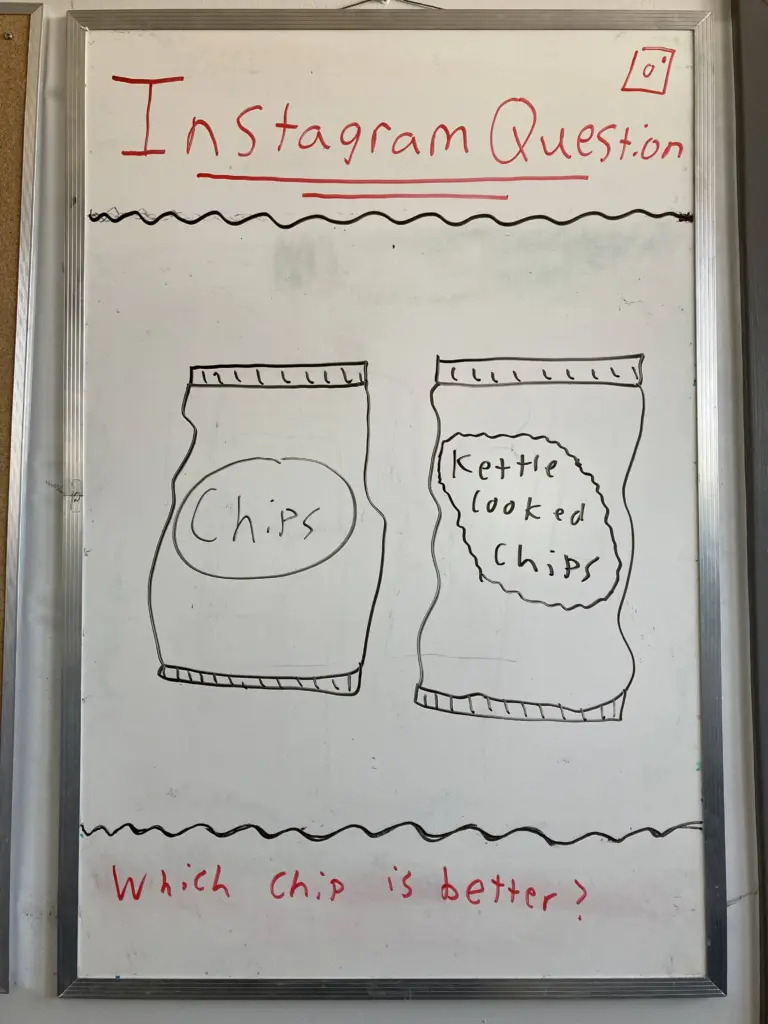 Instagram Question
Chips
Kettle
Cooked
Chips
Which chip is better?